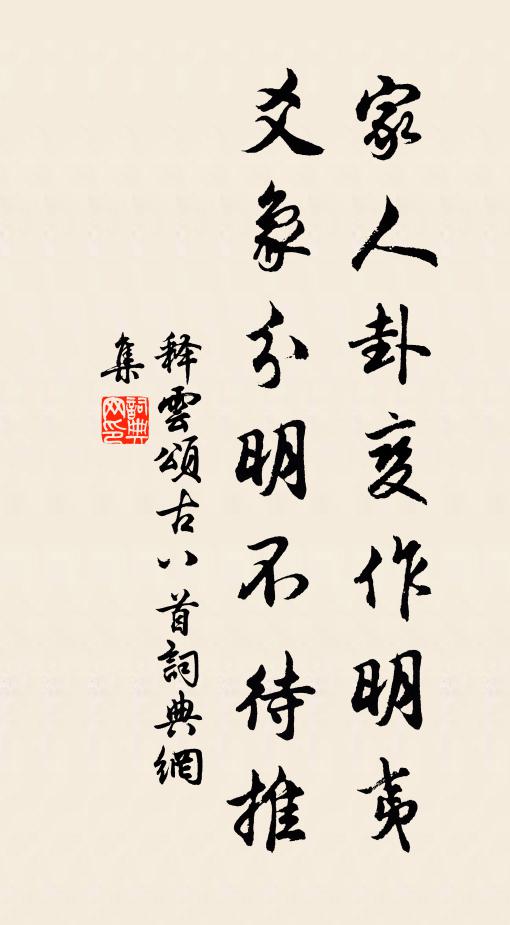 家人卦变作明夷
爻象分明不待推
释雲頌古八首詞典網
集
詞典
网印